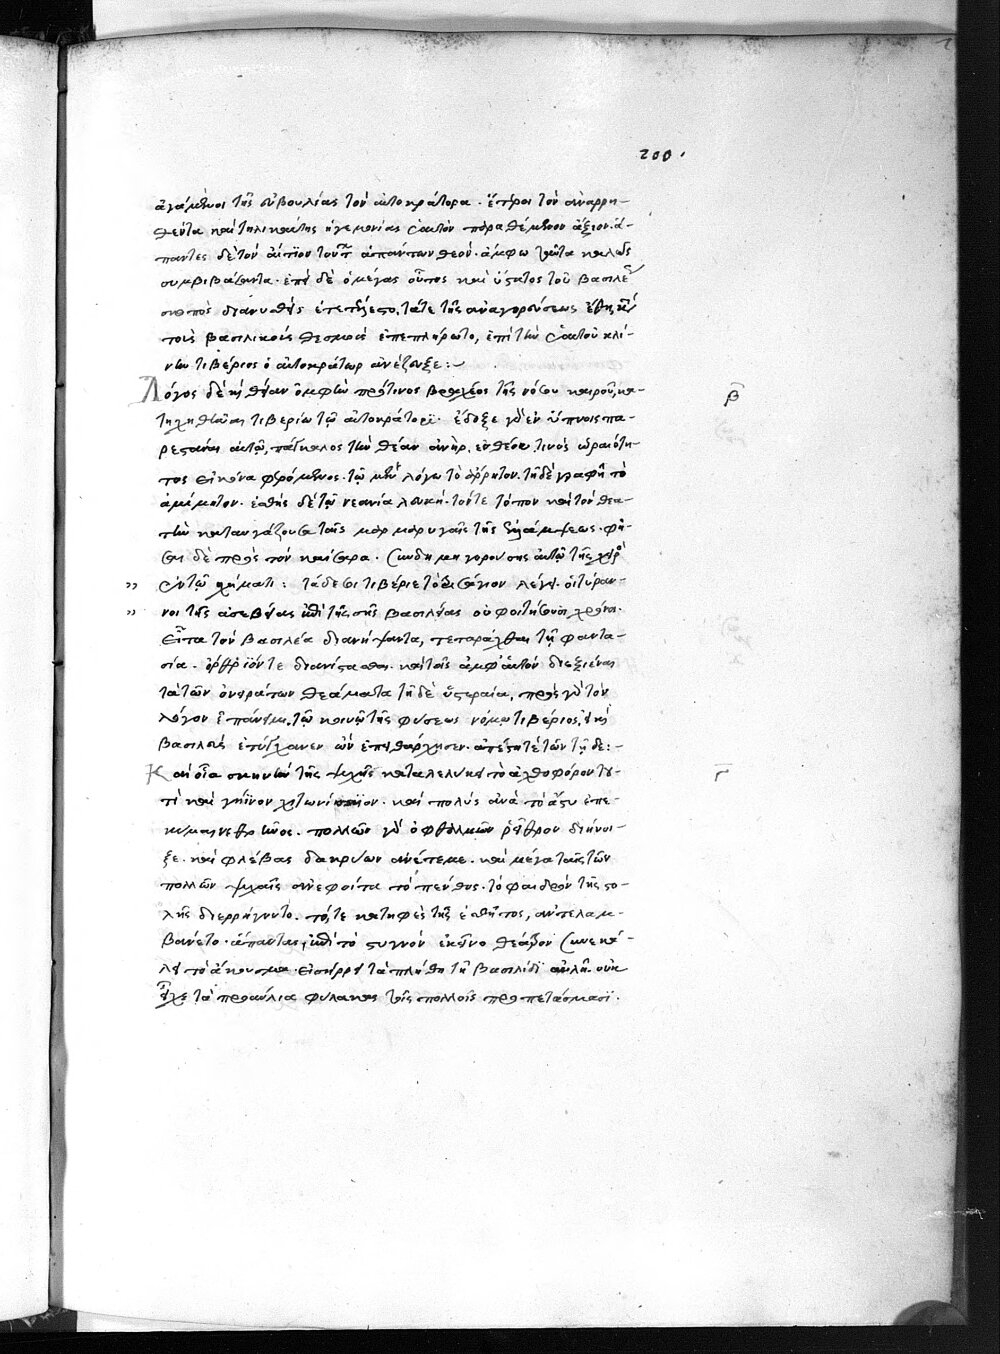 200.
ἀγάμενοι τῆς εὐβουλίας τὸν αὐτοκράτορα. ἕτεροι τὸν ἀναρρη-
θέντα καὶ τηλικαύτης ἡγεμονίας ἑαυτὸν παραθέμενον ἄξιον. ἅ-
παντες δὲ τὸν αἴτιον τούτων ἁπάντων θεόν. ἄμφω ταῦτα καλῶς
συμβιβάσαντα. ἐπεὶ δὲ ὁ μέγας οὗτος καὶ ὕστατος τοῦ βασιλεῖ
σκοπὸς διανυσθεὶς ἐτετέλεστο, τά τε τῆς ἀναγορεύσεως
τοῖς βασιλικοῖς θεσμοῖς ἐπεπλήρωτο, ἐπὶ τὴν ἑαυτοῦ κλί-
νην τιβέριος ὁ αὐτοκράτωρ ἀνέζευξε:~
Λόγος δὲ καὶ θείαν ὀμφὴν πρότινος βραχέος τῆς νόσου καιροῦ, κα-
β
τηχηθῆναι τιβερίω τῶ αὐτοκράτορϊ. ἔδοξε γὰρ ἐν ὕπνοις πα-
ρεστάναι αὐτῶ, πάγκαλος τὴν θέαν ἀνὴρ, ἐνθέου τινὸς ὡραιότη-
τος εἰκόνα φερόμενος. τῶ μὲν λόγω τὸ ἄρρητον. τῆ δὲ γραφῆ τὸ
ἀμίμητον. ἐσθὴς δὲ τῶ νεανία λευκὴ. τόν τε τόπον καὶ τὸν θεα-
τὴν καταυγάζουσα ταῖς μαρμαρυγαῖς τῆς ἐλλάμψεως. φῆ-
σαι δὲ πρὸς τὸν καίσαρα. συνδημηγορούσης αὐτῶ τῆς χειρὸς
σὺν τῶ σχήματι: τάδε σοι τιβέριε τὸ τρισάγιον λέγει. οἱ τύραν-
νοι τῆς ἀσεβείας ἐπὶ τῆς σῆς βασιλείας οὐ φοιτήσουσι χρόνοι.
εἶτα τὸν βασιλέα διανήψαντα, τεταράχθαι τῆ φαντα-
σία. ὄρθριόν τε διανίστασθαι. καὶ τοῖς ἀμφ' αὐτὸν διεξιέναι
τὰ τῶν ὀνειράτων θεάματα τῆ δὲ ὑστεραία, πρὸς γὰρ τὸν
λόγον ἐπάνειμι, τῶ κοινῶ τῆς φύσεως νόμω τιβέριος, ἐπεὶ
βασιλεὺς ἐτύγχανεν ὢν ἐπειθάρχησεν. ἀπέστη τε τῶν τῆδε:~
Καὶ οἷα σκηνὴν τῆς ψυχῆς καταλελυκε τὸ ἀχθοφόρον του-
Γ
τὶ καὶ γήϊνον χιτωνίσκιον. καὶ πολὺς ἀνὰ τὸ ἄστυ ἐπε-
κυμαίνε θροῦς. πολλῶν γὰρ ὀφθαλμῶν ῥεῖθρον διήνοι-
ξε. καὶ φλέβας δακρύων ἀνέτεμε. καὶ μέγα ταῖς τῶν
πολλῶν ψυχαῖς ἀνεφοίτα τὸ πένθος. τὸ φαιδρὸν τῆς στο-
λῆς διερρήγνυτο. τό, τε κατηφὲς τῆς ἐσθῆτος, ἀντελαμ-
βάνετο. ἅπαντας, ἐπὶ τὸ στυγνὸν ἐκεῖνο θέατρον συνεκά-
λει τὸ ἄκουσμα. εἰσήρρει τὰ πλήθη τῆ βασιλίδϊ αὐλῆ. οὐκ
εἶχε τὰ προαύλια φυλακὰς τοῖς πολλοῖς προπετάσμασϊ.